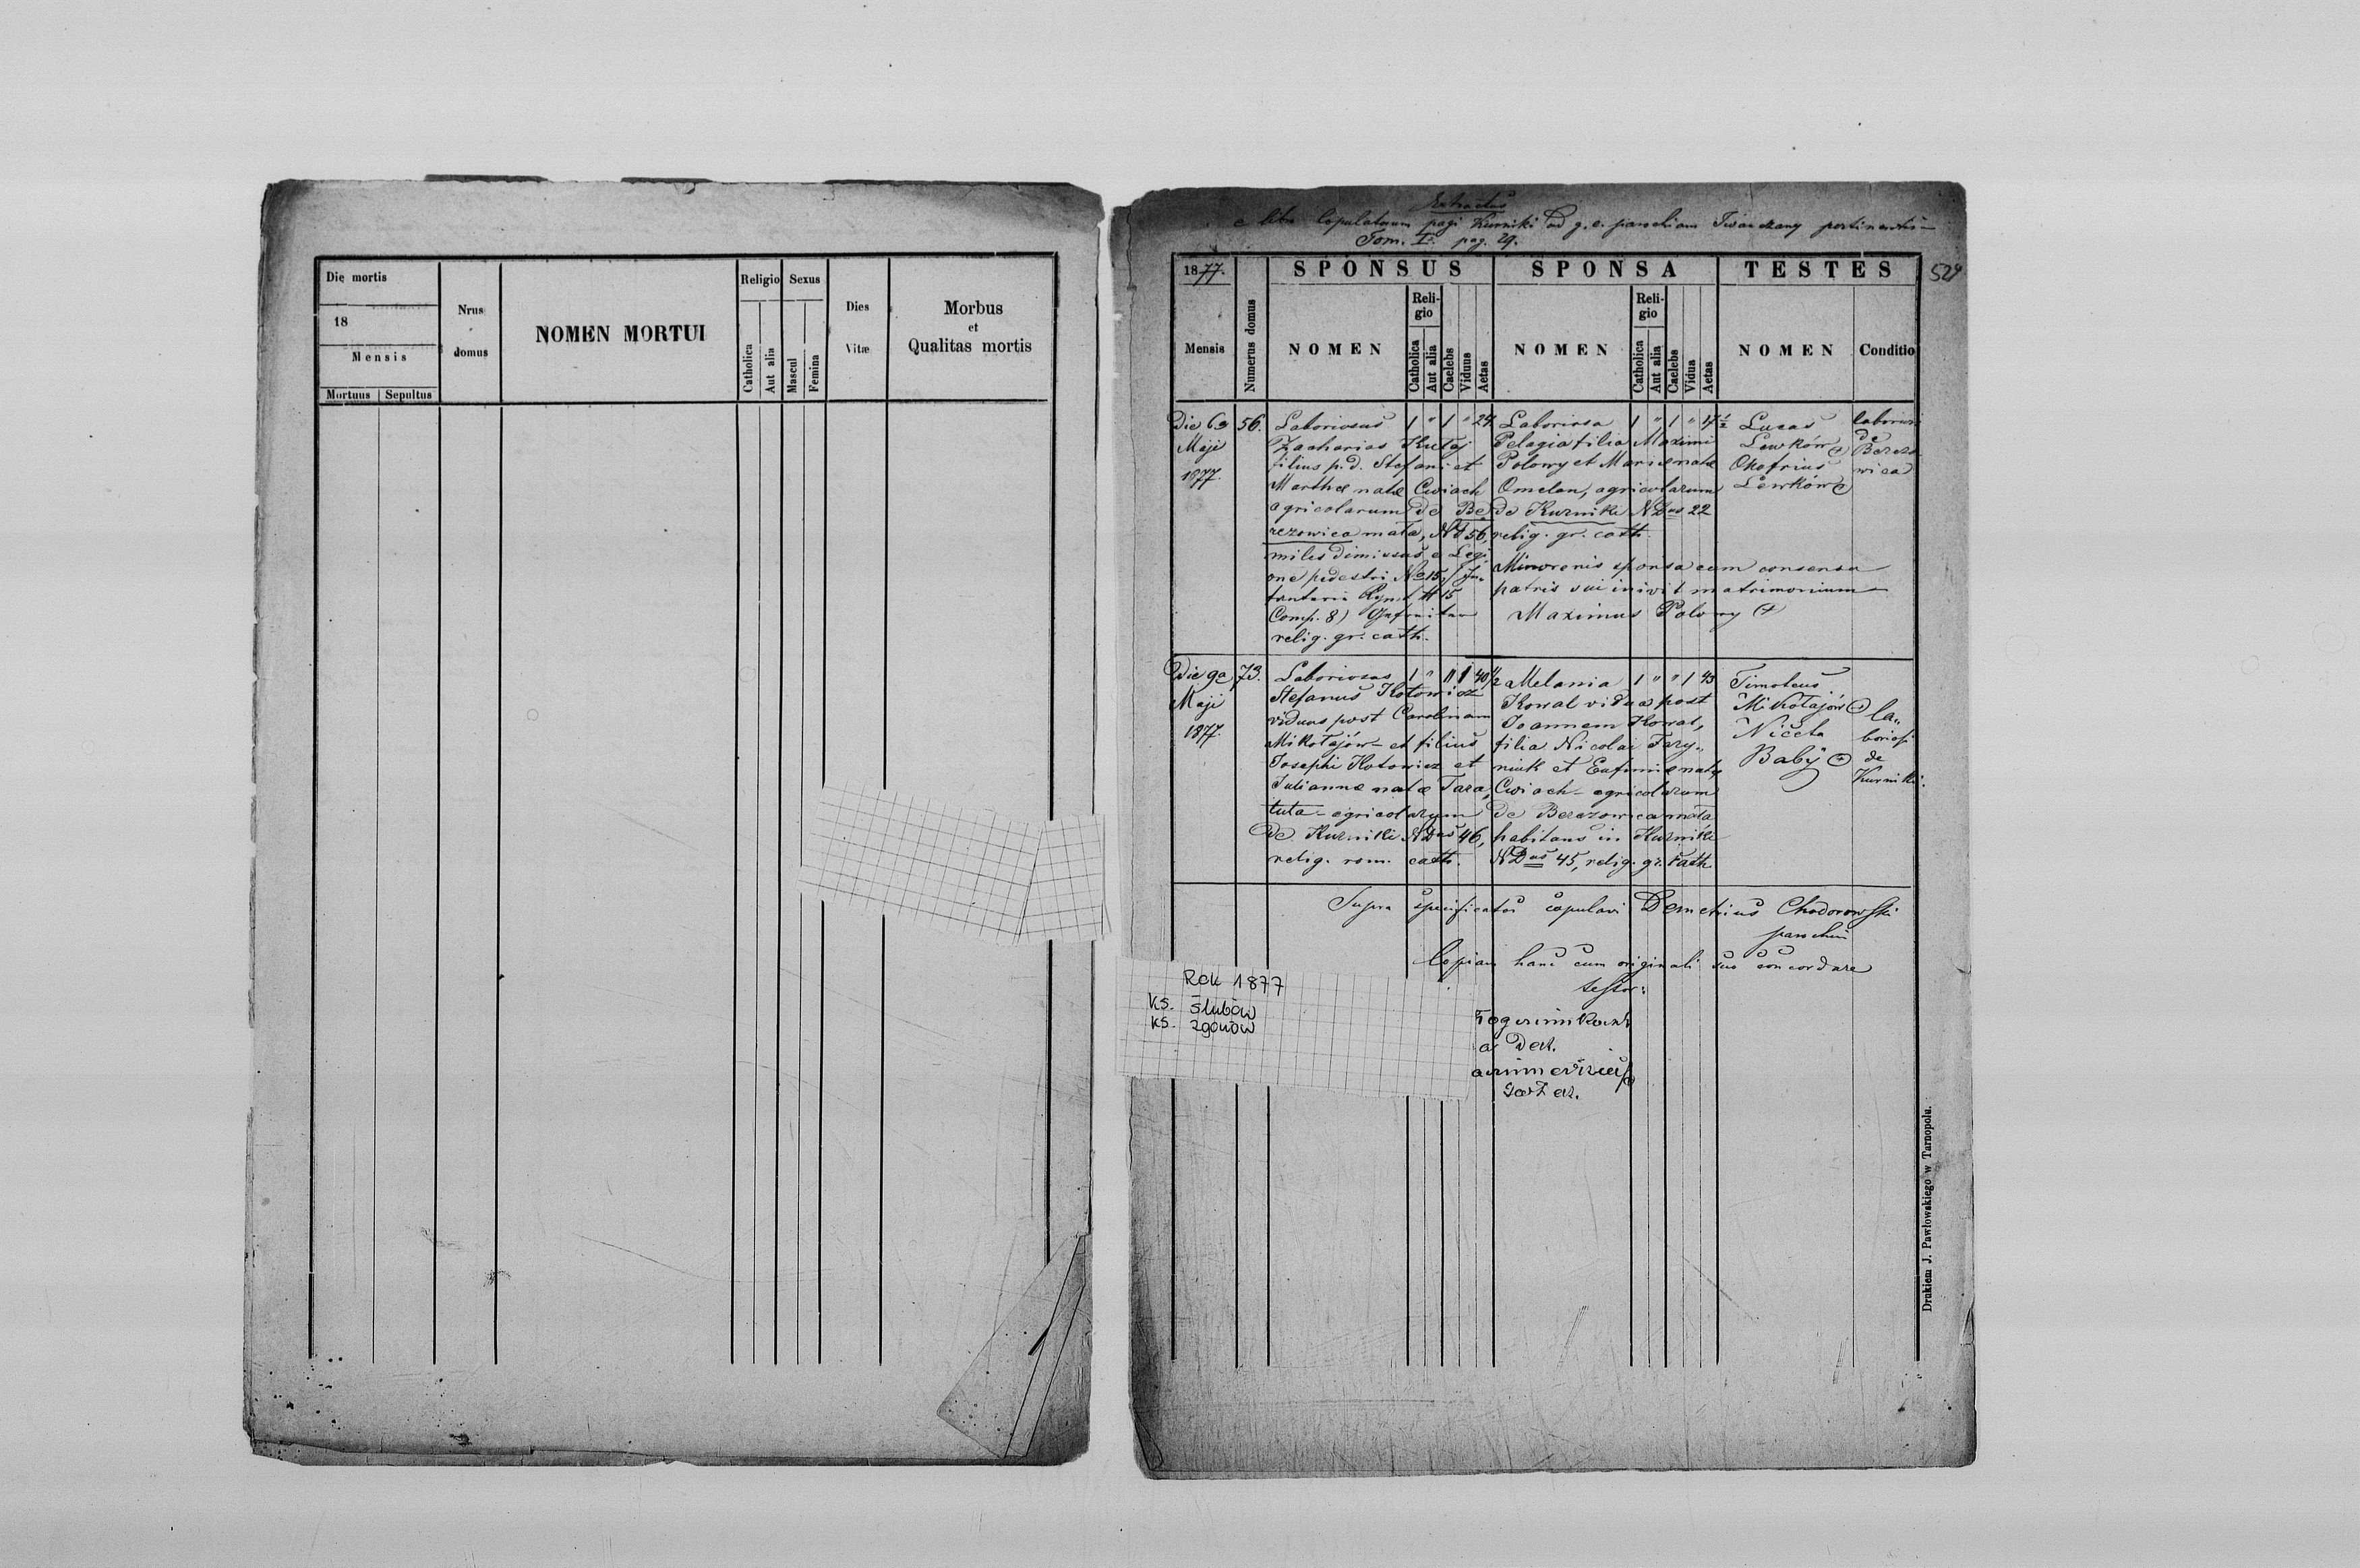 Die mortis
18
Mensis
Mortuus Sepultus
Nrus domus
NOMEN MORTUI
Religio
Catholica
Aut alia
Sexus
Mascul
Femina
Dies Vitæ
Morbus
et
Qualitas mortis
Extractus
e libro Copulatorum pagi Kurniki ad g. c. parochiam Iwanczany pertinentis
Tom. I. pag. 29.
524
1877.
Mensis
Numerus domus
SPONSUS
NOMEN
Religio
Catholica
Aut alia
Caelebs
Viduus
Aetas
SPONSA
NOMEN
Religio
Catholica
Aut alia
Caelebs
Vidua
Aetas
TESTES
NOMEN
Conditio
Die 6a
Maji
1877.
56.
Laboriosus 1 " 1 " 24.
Zacharias Kutaj
filius p. d. Stefani et
Marthæ natæ Cwiach
agricolarum de Be
rezowica mała, Nd 56,
miles dimissus e Legi
one pedestri No 15, / In
fanterie Rgmt # 15
Comp. 8)
relig. gr. cath.
Laboriosa 1 " 1 " 17½
Pelagia filia Maximi
Polowy et Mariæ natæ
Omelan, agricolarum
de Kurniki NDus 22
relig. gr. cath.
Minorenis sponsa cum consensu
patris sui inivit matrimonium
Maximus Polowy +
Lucas
Lewków +
Onofrius
Lewków +
laboriosi
de
Berezo
wica
Die 9a
Maji
1877.
73.
Laboriosus 1 " " 1 40½
Stefanus Kotowicz
viduus post Carolinam
Mikołajów et filius
Josephi Kotowicz et
Juliannæ natæ Tara,
tuta agricolarum
de Kurniki NDus 46,
relig. rom. cath.
Melania 1 " " 1 43
Kowal vidua post
Joannem Kowal,
filia Nicolai Tary,,
niuk et Eufimiæ natæ
Cwiach agricolarum
de Berezowica mała
habitans in Kurniki
NDus 45, relig. gr. cath.
Timoteus
Mikołajów +
Niceta
Baby +
la,,
boriosi
de
Kurniki.
Supra specificatos copulavi Demetrius Chodorowski
parochus
Copiam hanc cum originali suo concordare
testor:
Rok 1877
ks. ślubów
ks. zgonów
Drukiem J. Pawłowskiego w Tarnopolu.